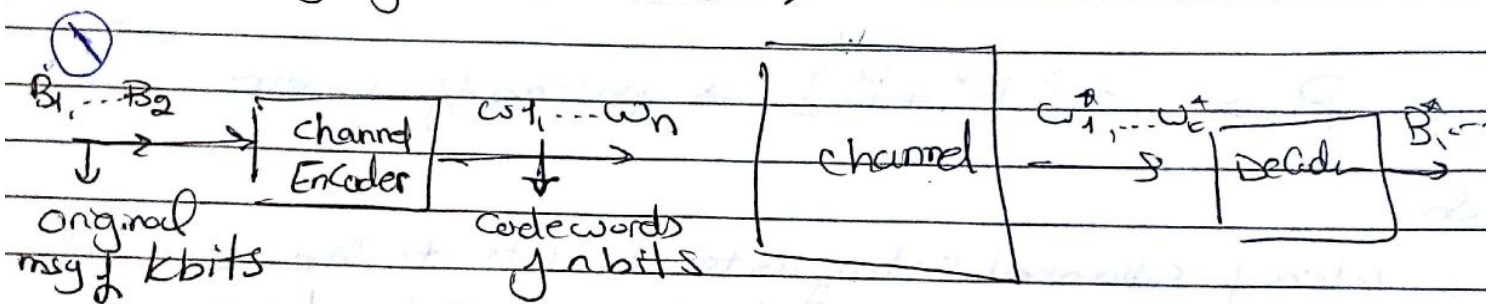 B1,....B2
channel
Encoder
ω1,....ωn
channel
ω*1,....ω*c
B*,..
original
msg of kbits
codewords
of n bits